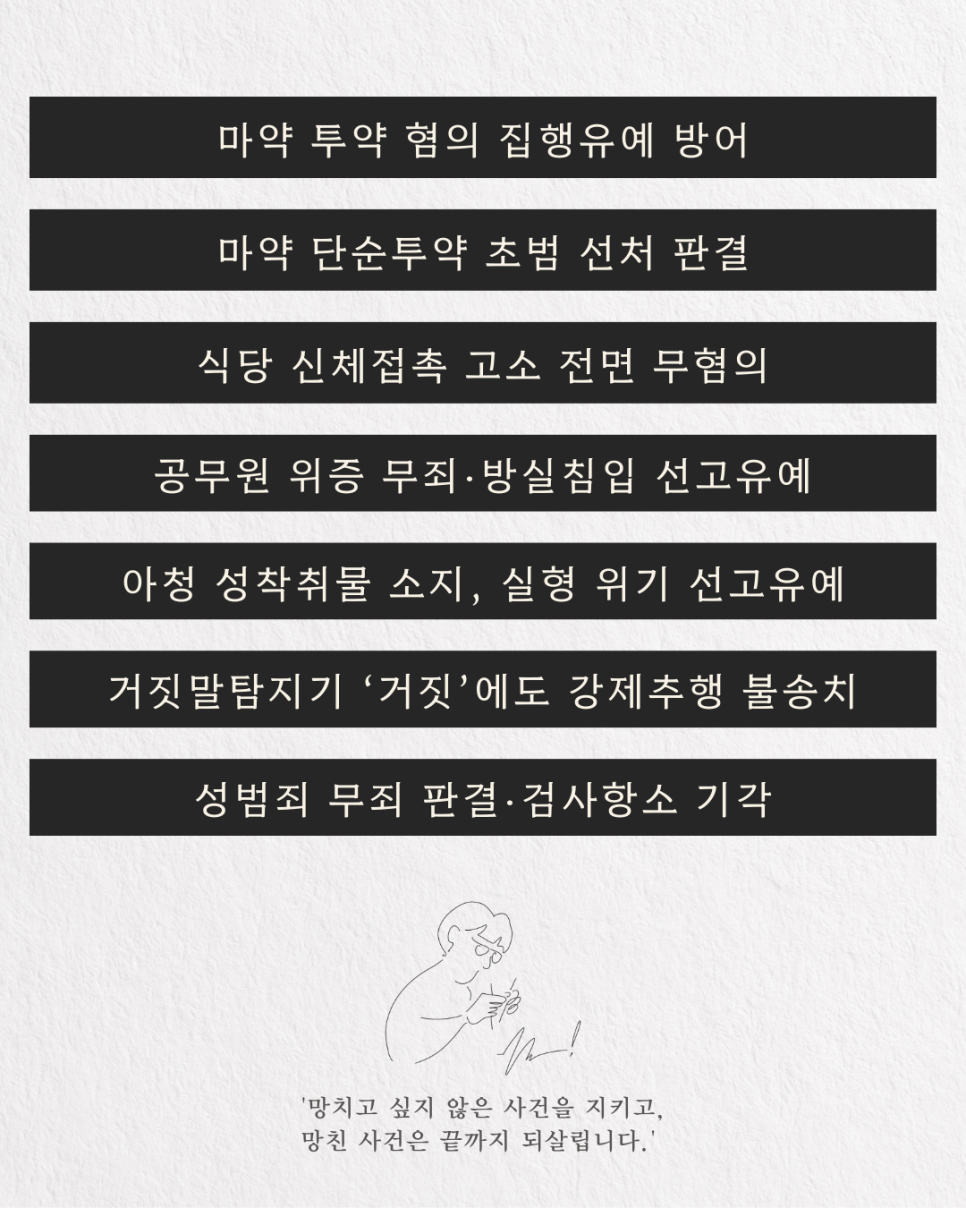 마약 투약 혐의 집행유예 방어
마약 단순투약 초범 선처 판결
식당 신체접촉 고소 전면 무혐의
공무원 위증 무죄·방실침입 선고유예
아청 성착취물 소지, 실형 위기 선고유예
거짓말탐지기 ‘거짓’에도 강제추행 불송치
성범죄 무죄 판결·검사항소 기각
'망치고 싶지 않은 사건을 지키고,
망친 사건은 끝까지 되살립니다.'